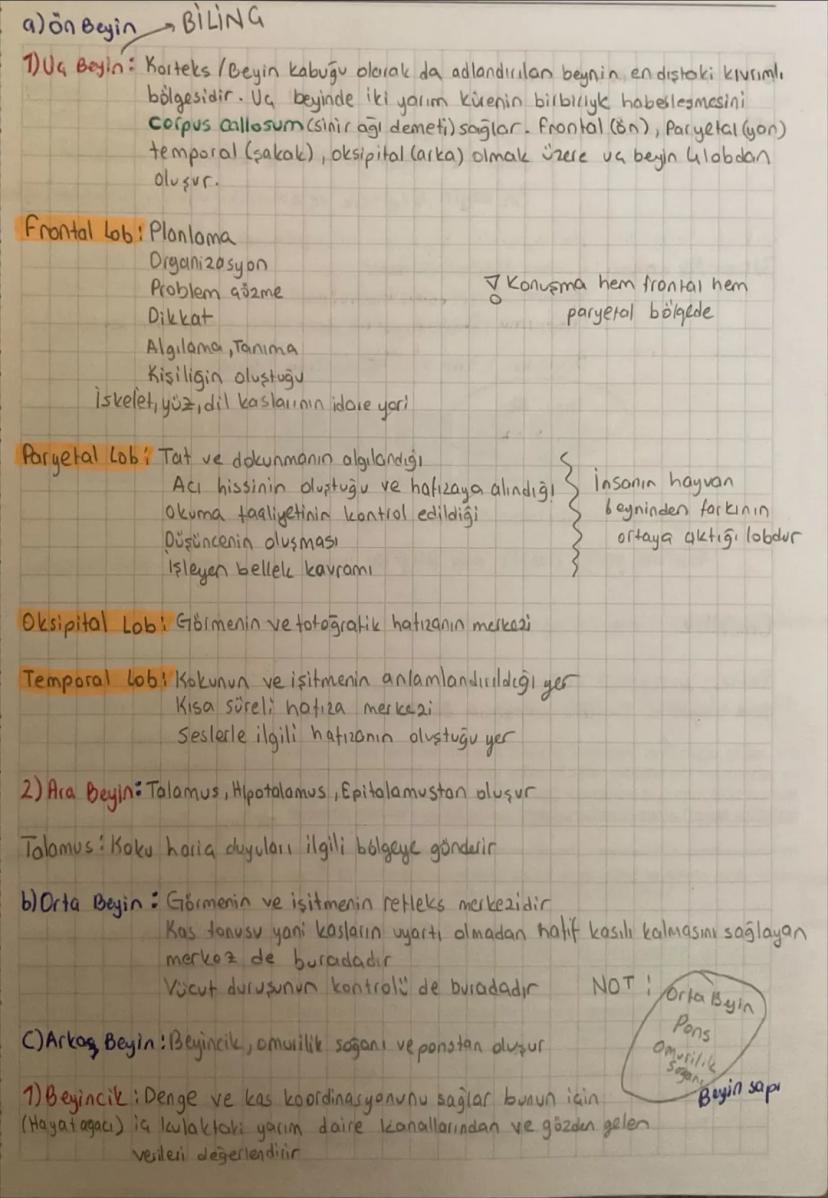 a) Ön Beyin → BİLİNÇ
1) Uç Beyin: Korteks / Beyin kabuğu olarak da adlandırılan beynin en dıştaki kıvrımlı
bölgesidir. Uç beyinde iki yarım kürenin birbiriyle haberleşmesini
corpus callosum (sinir ağı demeti) sağlar. Frontal (ön), Paryetal (yan)
temporal (şakak), oksipital (arka) olmak üzere uç beyin 4 lobdan
oluşur.
Frontal Lob: Planlama
Organizasyon
Problem çözme
Dikkat
Algılama, Tanıma
Kişiliğin oluştuğu
İskelet, yüz, dil kaslarının idare yeri
Konuşma hem frontal hem
paryetal bölgede
Paryetal Lob: Tat ve dokunmanın algılandığı
Acı hissinin oluştuğu ve hafızaya alındığı
Okuma faaliyetinin kontrol edildiği
Düşüncenin oluşması
İşleyen bellek kavramı
İnsanın hayvan
beyninden farkının
ortaya çıktığı lobdur
Oksipital Lob: Görmenin ve fotoğrafik hafızanın merkezi
Temporal Lob: Kokunun ve işitmenin anlamlandırıldığı yer
Kısa süreli hafıza merkezi
Seslerle ilgili hafızanın oluştuğu yer
2) Ara Beyin: Talamus, Hipotalamus, Epitalamustan oluşur
Talamus: Koku hariç duyuları ilgili bölgeye gönderir
b) Orta Beyin: Görmenin ve işitmenin refleks merkezidir
Kas tonusu yani kasların uyartı olmadan hafif kasılı kalmasını sağlayan
merkez de buradadır
Vücut duruşunun kontrolü de buradadır
NOT!
Orta Beyin
Pons
Omurilik
Soğanı
Beyin sapı
C) Arka Beyin: Beyincik, omurilik soğanı ve ponstan oluşur
1) Beyincik: Denge ve kas koordinasyonunu sağlar bunun için
(Hayat ağacı) iç kulaktaki yarım daire kanallarından ve gözden gelen
verileri değerlendirir